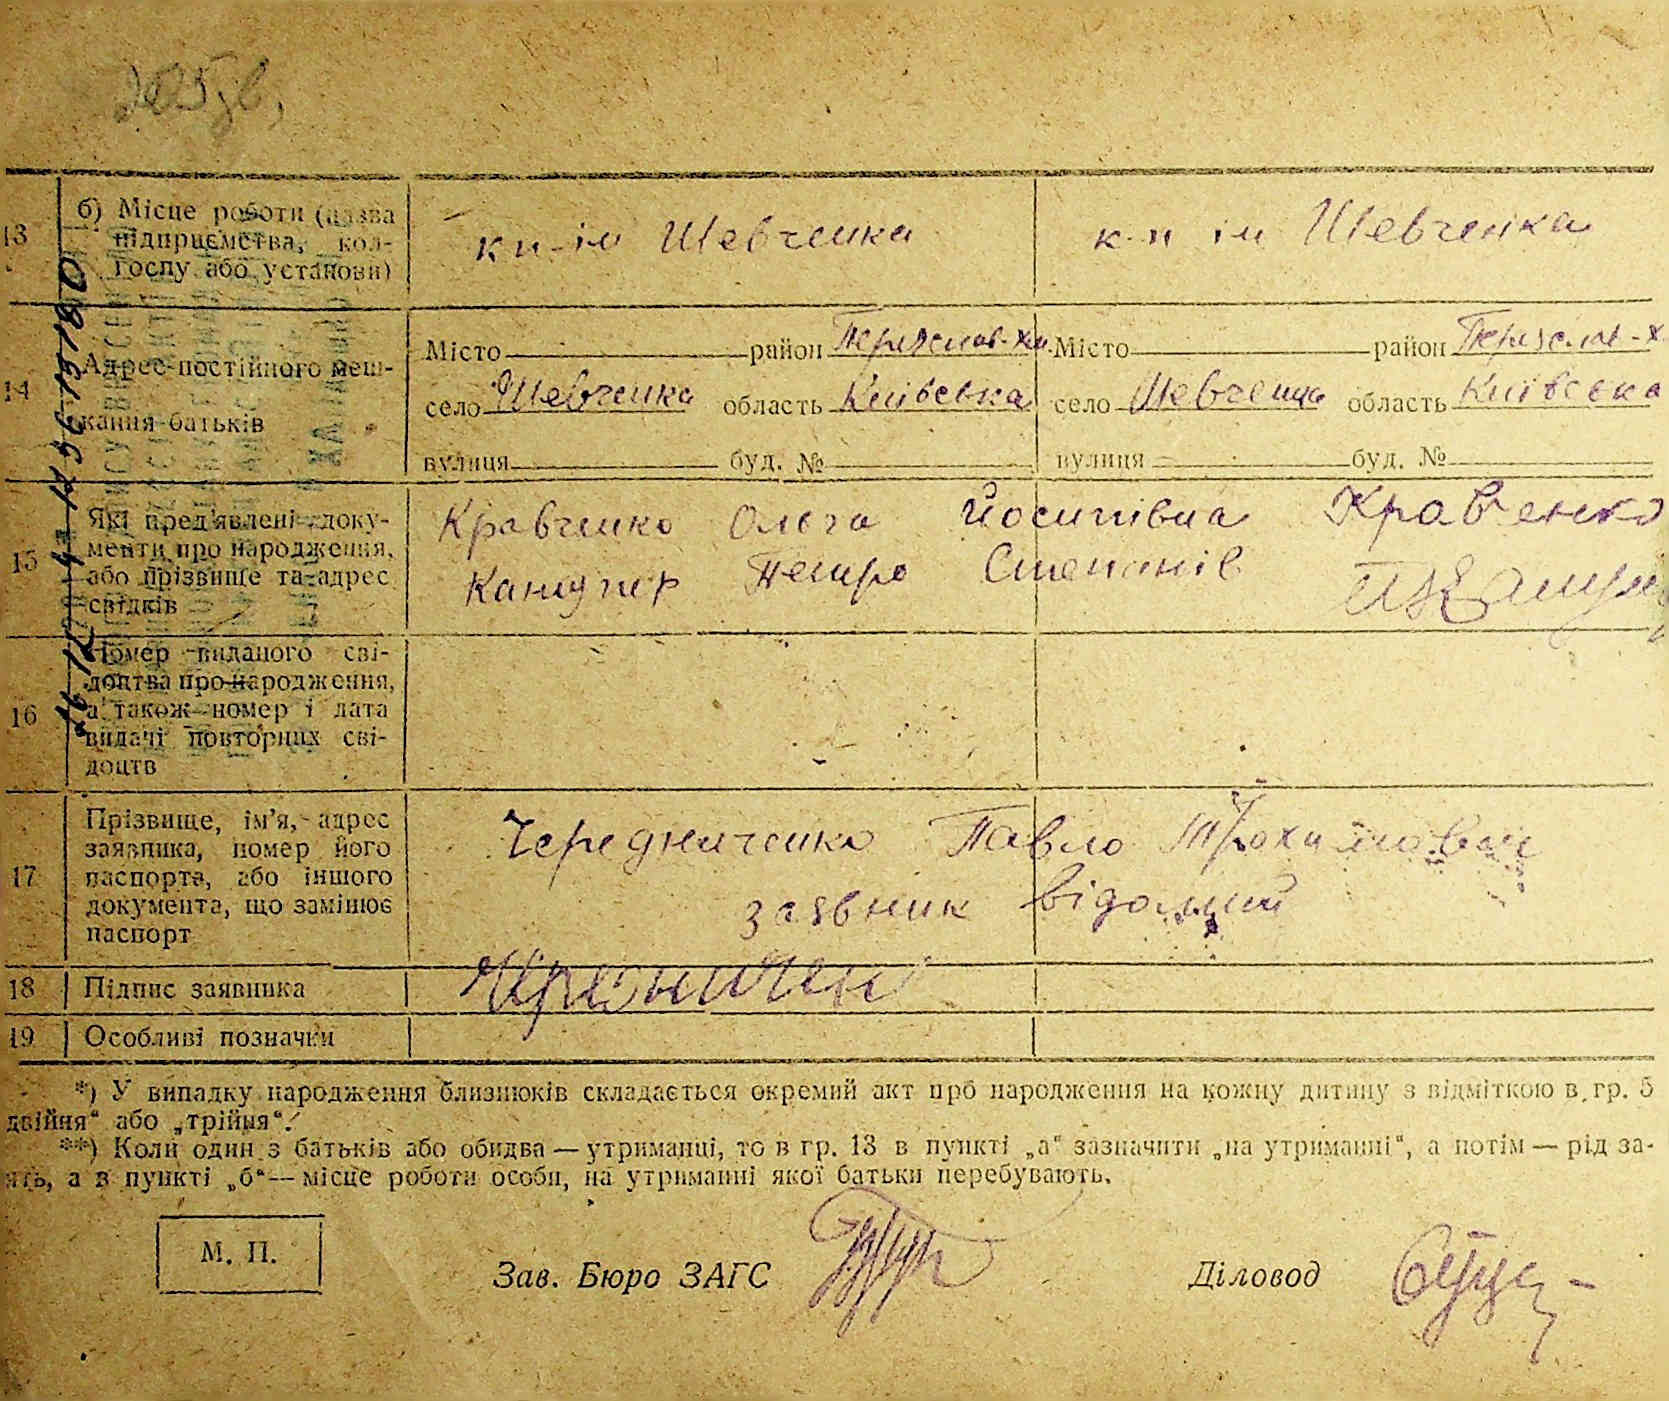 13 б) Місце роботи (назва
підприємства, кол-
госпу або установи)
к п-ім Шевченка
к-п ім Шевченка
14 Адрес постійного меш-
кання батьків
Місто район Переяслав-Хм
село Шевченка область Київська
вулиця буд. №
Місто район Переяслав-Х
село Шевченка область Київська
вулиця буд. №
15 Які пред'явлені доку-
менти про народження,
або прізвище та адрес
свідків
Кравченко Ольга Йосипівна Кравченко
Петро Степанів
16 Номер виданого сві-
доцтва про народження,
а також номер і дата
видачі повторних сві-
доцтв
17 Прізвище, ім'я, адрес
заявника, номер його
паспорта, або іншого
документа, що замінює
паспорт
Чередниченко Павло Трохимович
заявник відомий
18 Підпис заявника
19 Особливі позначки
*) У випадку народження близнюків складається окремий акт про народження на кожну дитину з відміткою в гр. 5
двійня" або „трійня".
**) Коли один з батьків або обидва — утриманці, то в гр. 13 в пункті „а" зазначити „на утриманні", а потім — рід за-
ять, а в пункті „б"— місце роботи особи, на утриманні якої батьки перебувають.
М. П.
Зав. Бюро ЗАГС
Діловод